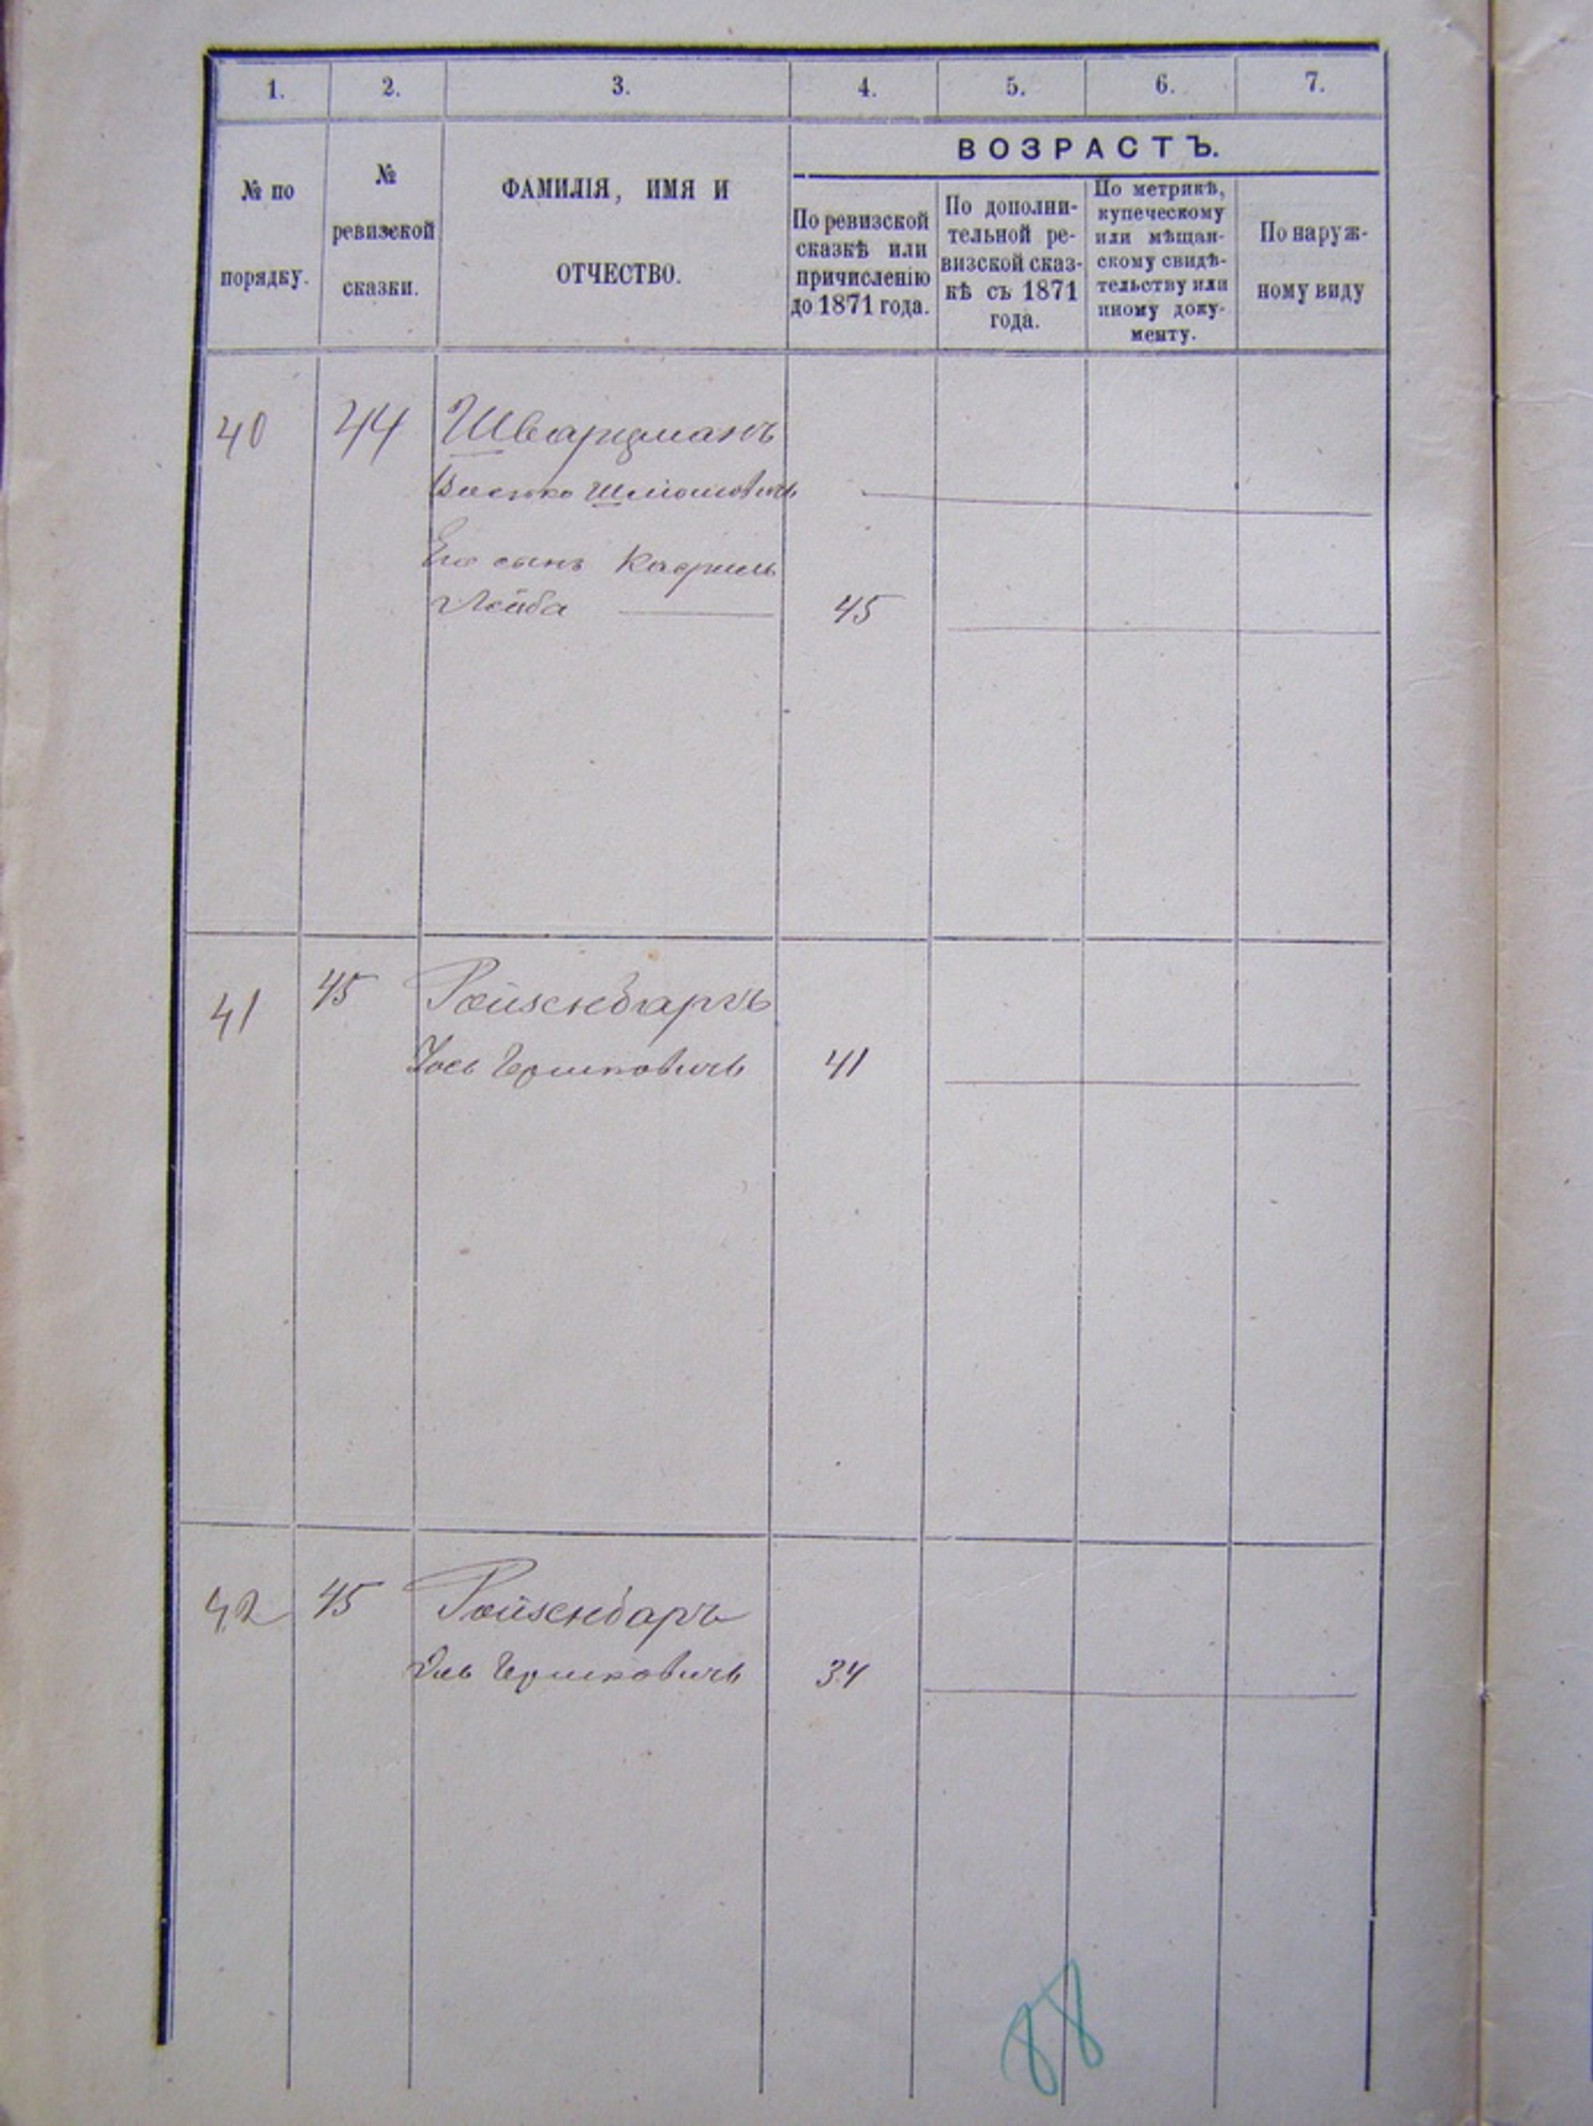 1. 2. 3. 4. 5. 6. 7.
№ по
порядку.
№
ревизской
сказки.
ФАМИЛІЯ, ИМЯ И
ОТЧЕСТВО.
ВОЗРАСТЪ.
По ревизской
сказкѣ или
причисленію
до 1871 года.
По дополни-
тельной ре-
визской сказ-
кѣ съ 1871
года.
По метрикѣ,
купеческому
или мѣщан-
скому свидѣ-
тельству или
иному доку-
менту.
По наруж-
ному виду
40 44 Шварцманъ
Шліомовичъ
Его сынъ Кафриль
Лейба 45
41 45 Ройзенбаргъ
Іось Гершковичъ 41
42 45 Ройзенбаргъ
Гершковичъ 34
88